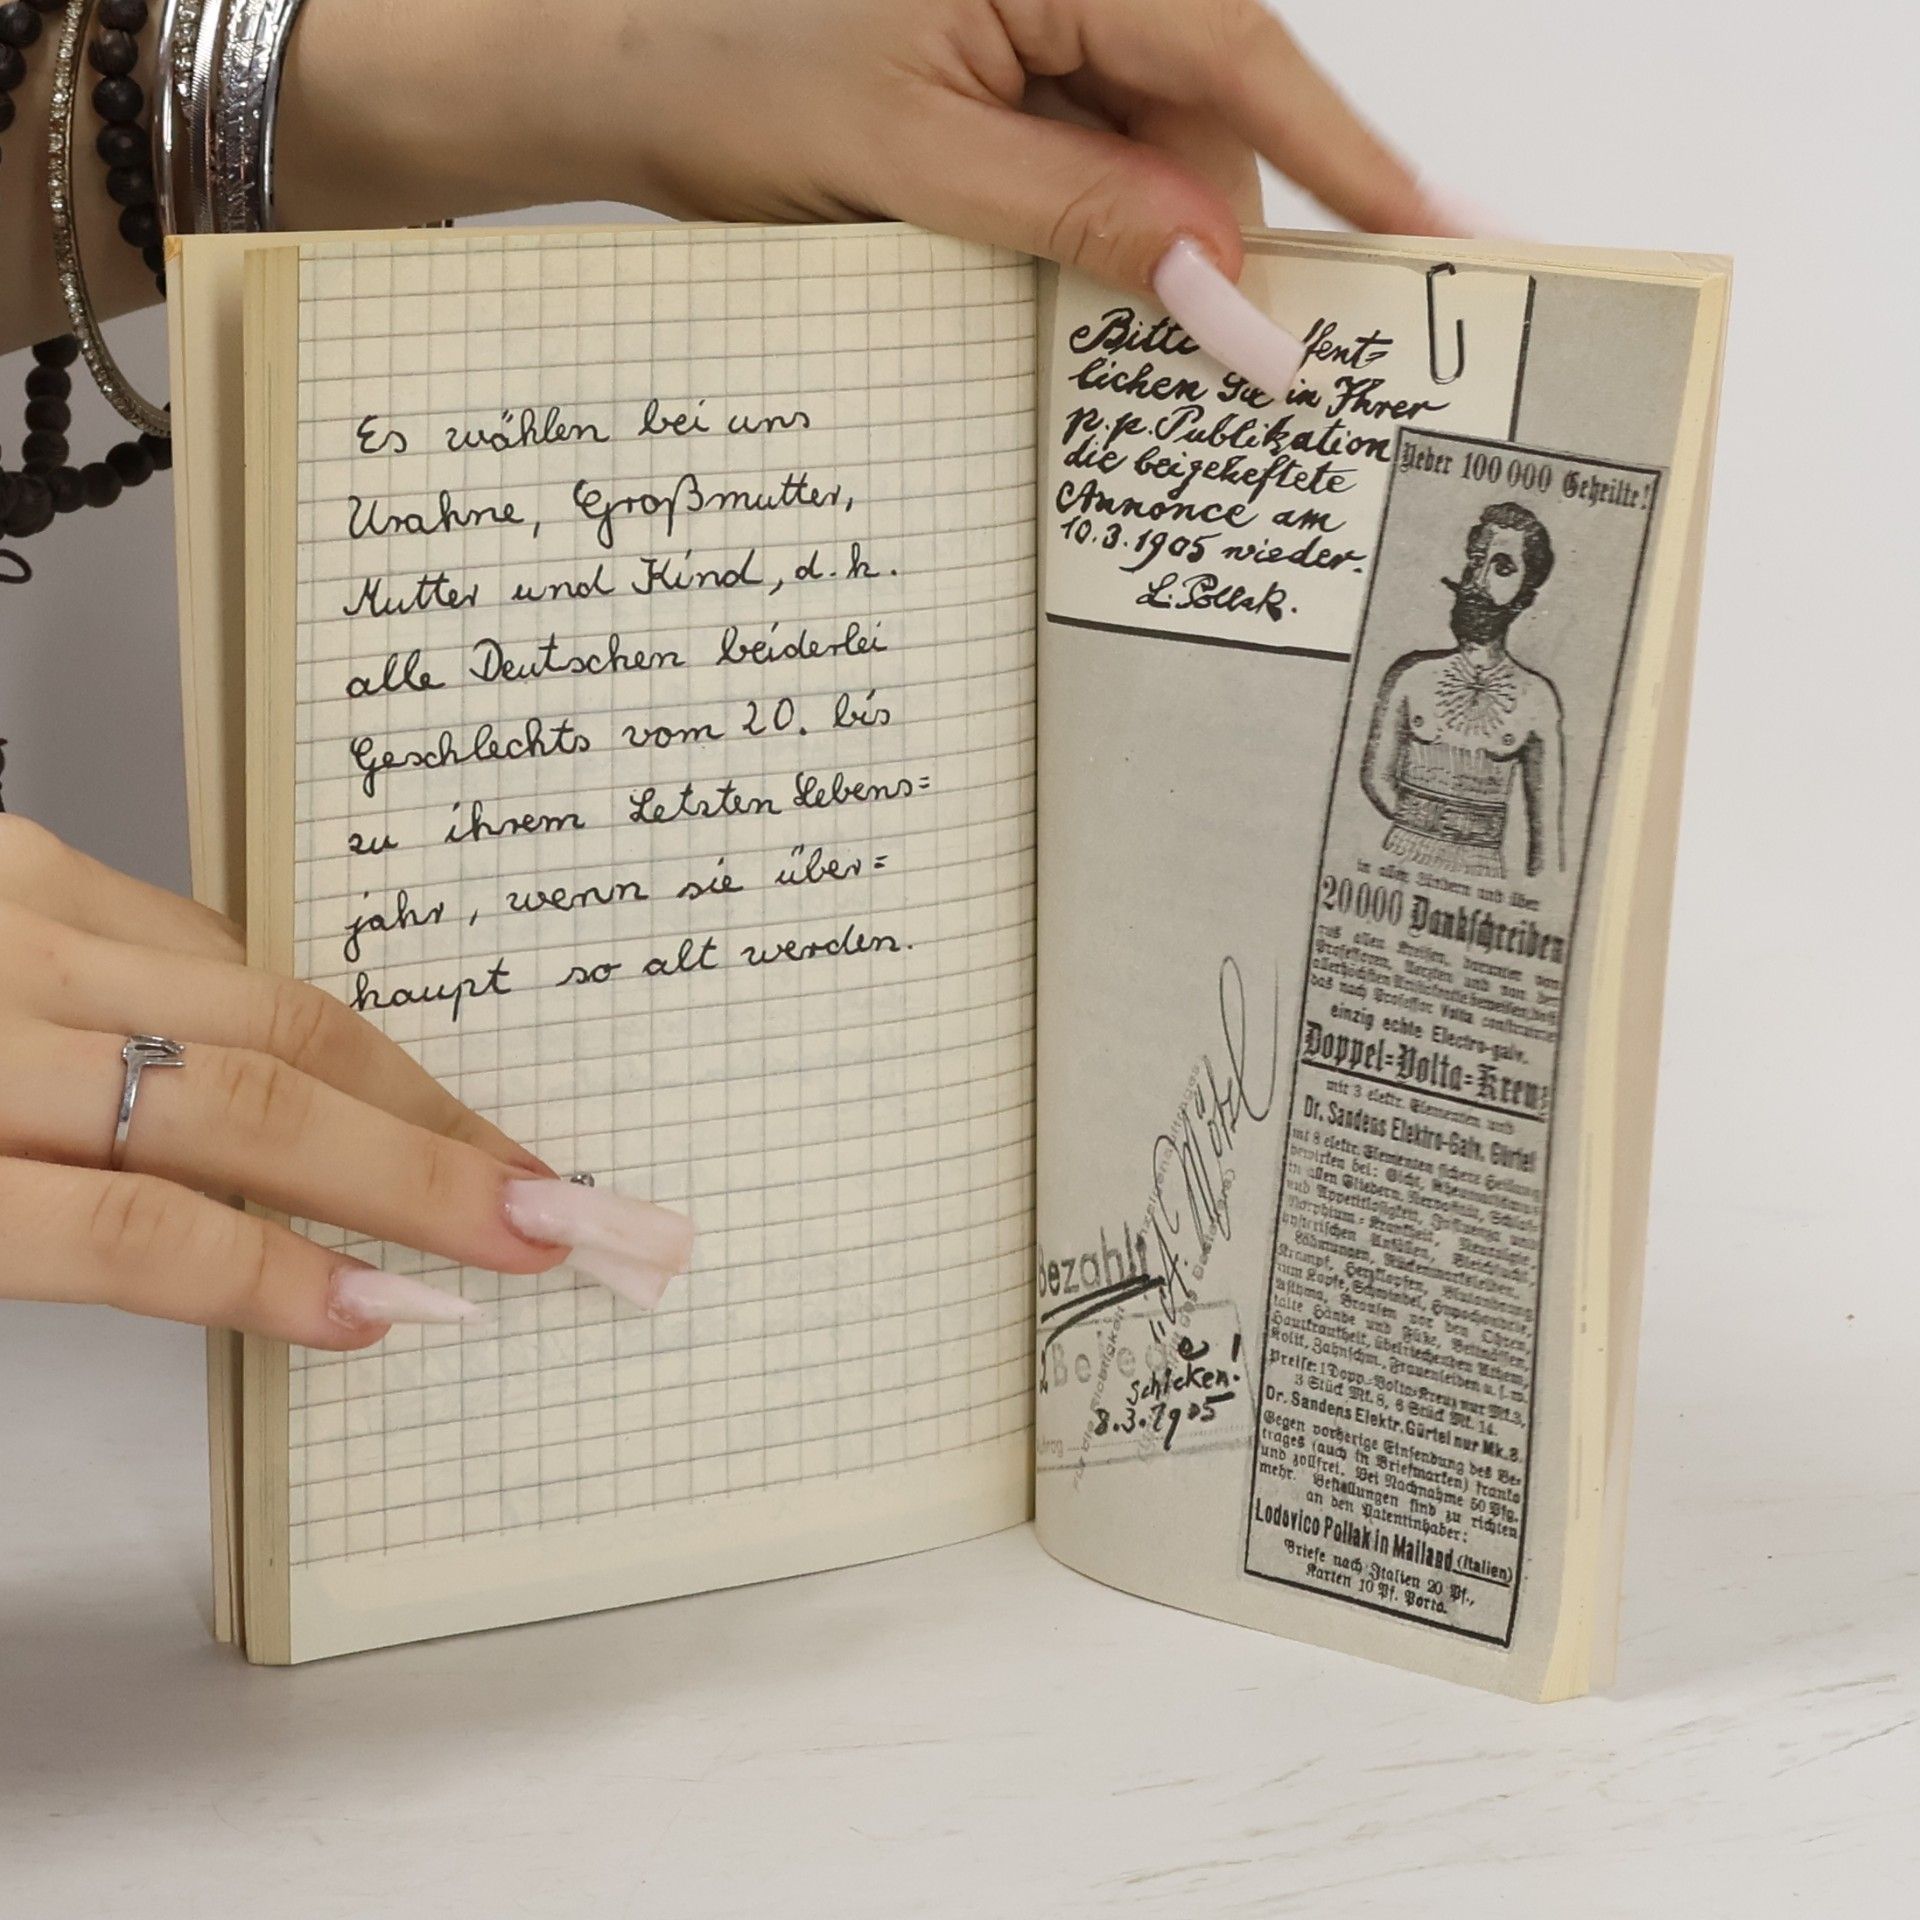 Es wählen bei uns
Urahne, Großmutter,
Mutter und Kind, d.h.
alle Deutschen beiderlei
Geschlechts vom 20. bis
zu ihrem Letzten Lebens=
jahr, wenn sie über=
haupt so alt werden.
fent=
lichen Sie in Ihrer
p.p. Publikation
die beigeheftete
Annonce am
10.3.1905 wieder.
L. Pollak.
Ueber 100 000 Geheilte!
in allen Ländern und über
20000 Dankschreiben
aus allen Kreisen, darunter von
Professoren, Aerzten und von der
das nach Professor Volta construirte
einzig echte Electro-galv.
Doppel=Volta=Kreuz
mit 3 elektr. Elementen und
Dr. Sandens Elektro-Galv. Gürtel
mit 8 elektr. Elementen sichere Heilung
bewirken bei: Gicht, Rheumatismus
in allen Gliedern, Nervosität, Schlaf-
und Appetitlosigkeit, Influenza und
Morphium=Krankheit, Neuralgie,
hysterischen Anfällen, Bleichsucht,
Lähmungen, Rückenmarksleiden,
Krampf, Herzklopfen, Blutandrang
zum Kopfe, Schwindel, Hypochondrie,
Asthma, Brausen vor den Ohren,
kalte Hände und Füße, Bettnässen,
Hautkrankheit, übelriechenden Athem,
Kolik, Zahnschm., Frauenleiden u. s. w.
Preise: 1 Dopp.-Volta-Kreuz nur Mk. 3,
3 Stück Mk. 8, 6 Stück Mk. 14.
Dr. Sandens Elektr. Gürtel nur Mk. 8.
Gegen vorherige Einsendung des Be-
trages (auch in Briefmarken) franko
und zollfrei. Bei Nachnahme 50 Pfg.
mehr. Bestellungen sind zu richten
an den Patentinhaber:
Lodovico Pollak in Mailand (Italien)
Briefe nach Italien 20 Pf.,
Karten 10 Pf. Porto.
Bezahlt
schicken!
8.3.1905